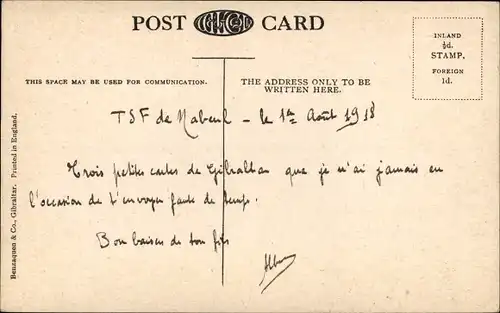 POST CARD
INLAND
½d.
STAMP,
FOREIGN
1d.
THIS SPACE MAY BE USED FOR COMMUNICATION.
THE ADDRESS ONLY TO BE
WRITTEN HERE.
TSF de Nabeul - le 1er Août 1918
Trois petites cartes de Gibraltar que je n'ai jamais eu
l'occasion de t'envoyer faute de temps.
Bon baisers de ton fils
Benzaquen & Co., Gibraltar. Printed in England.